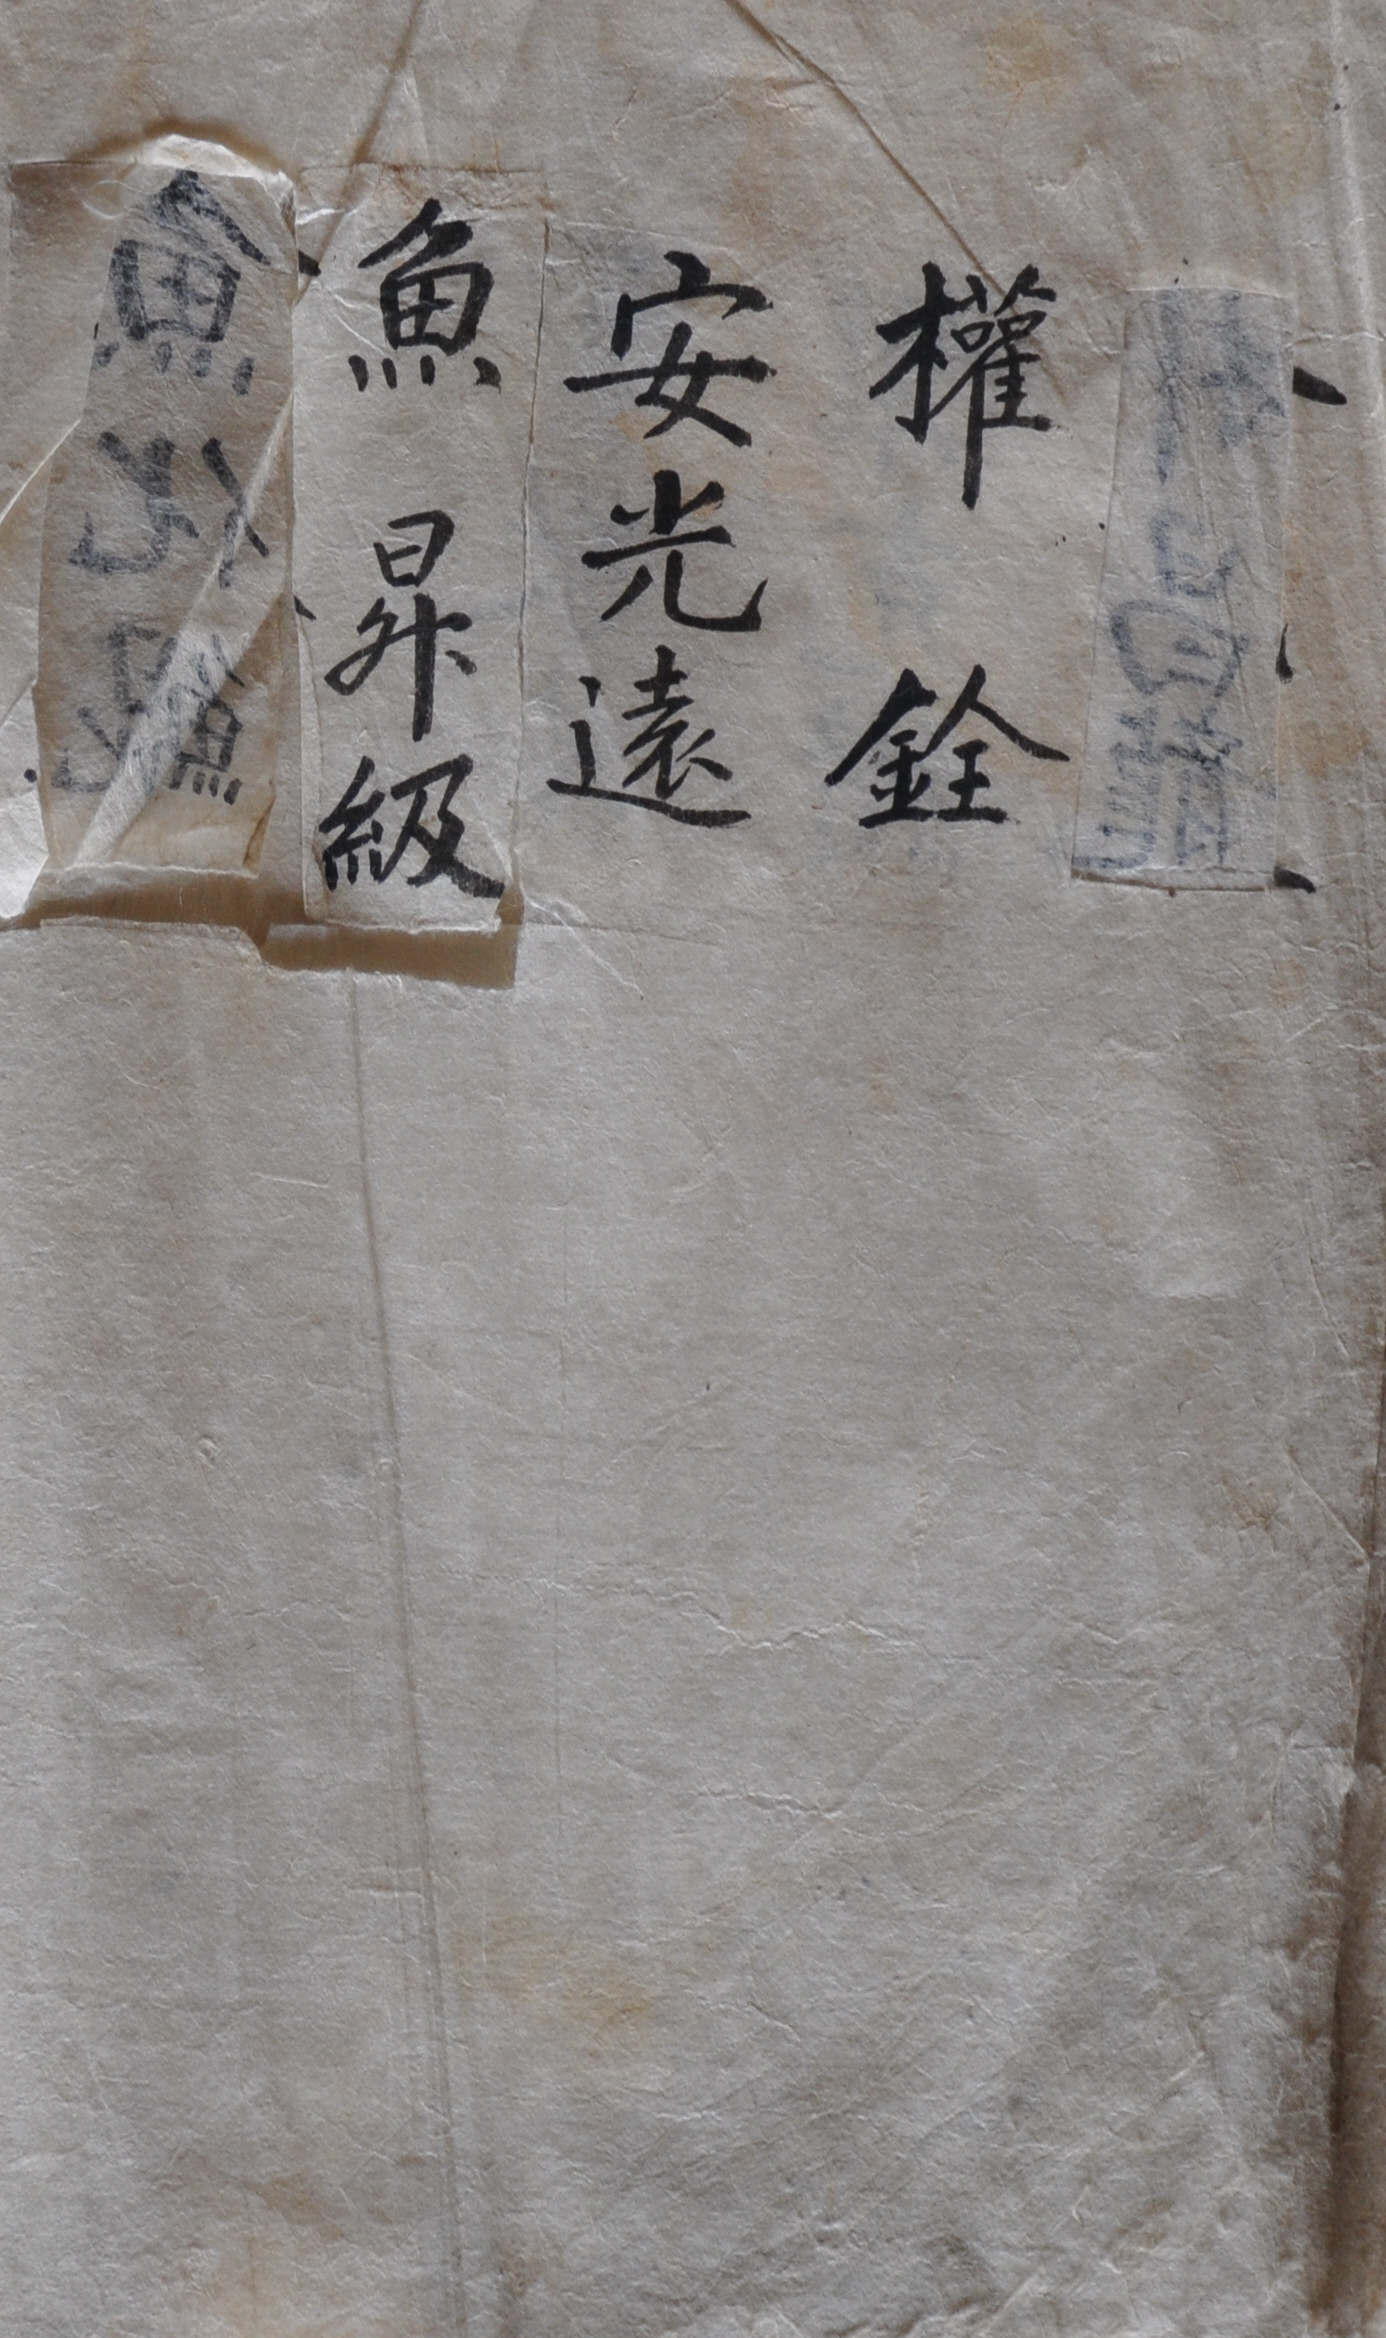 權銓
安光遠
魚昇級
魚化鯤